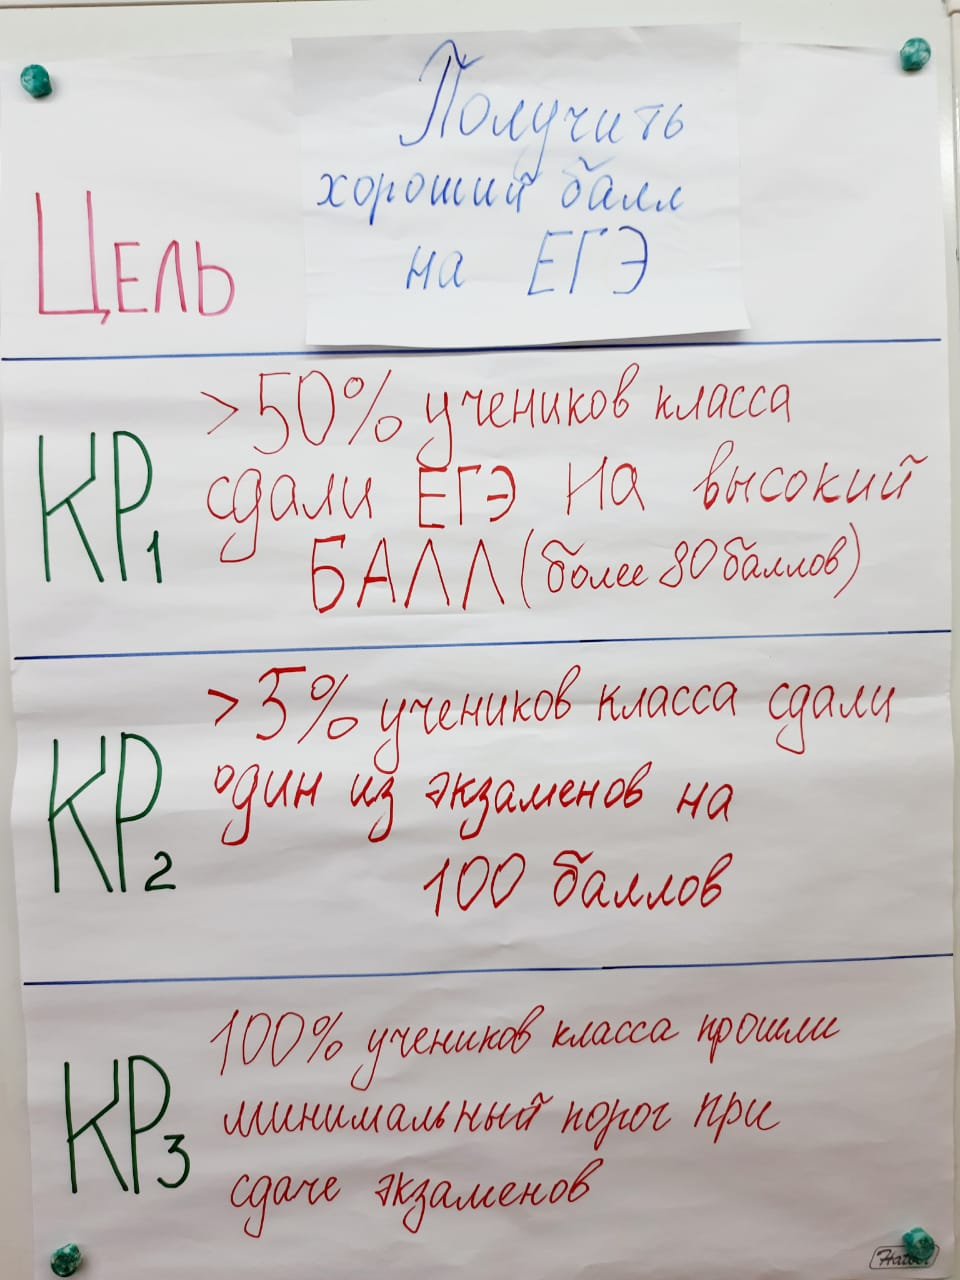 Получить
хороший балл
на ЕГЭ
Цель
КР1
>50% учеников класса
сдали ЕГЭ на высокий
БАЛЛ (более 80 баллов)
КР2
>5% учеников класса сдали
один из экзаменов на
100 баллов
КР3
100% учеников класса прошли
минимальный порог при
сдаче экзаменов